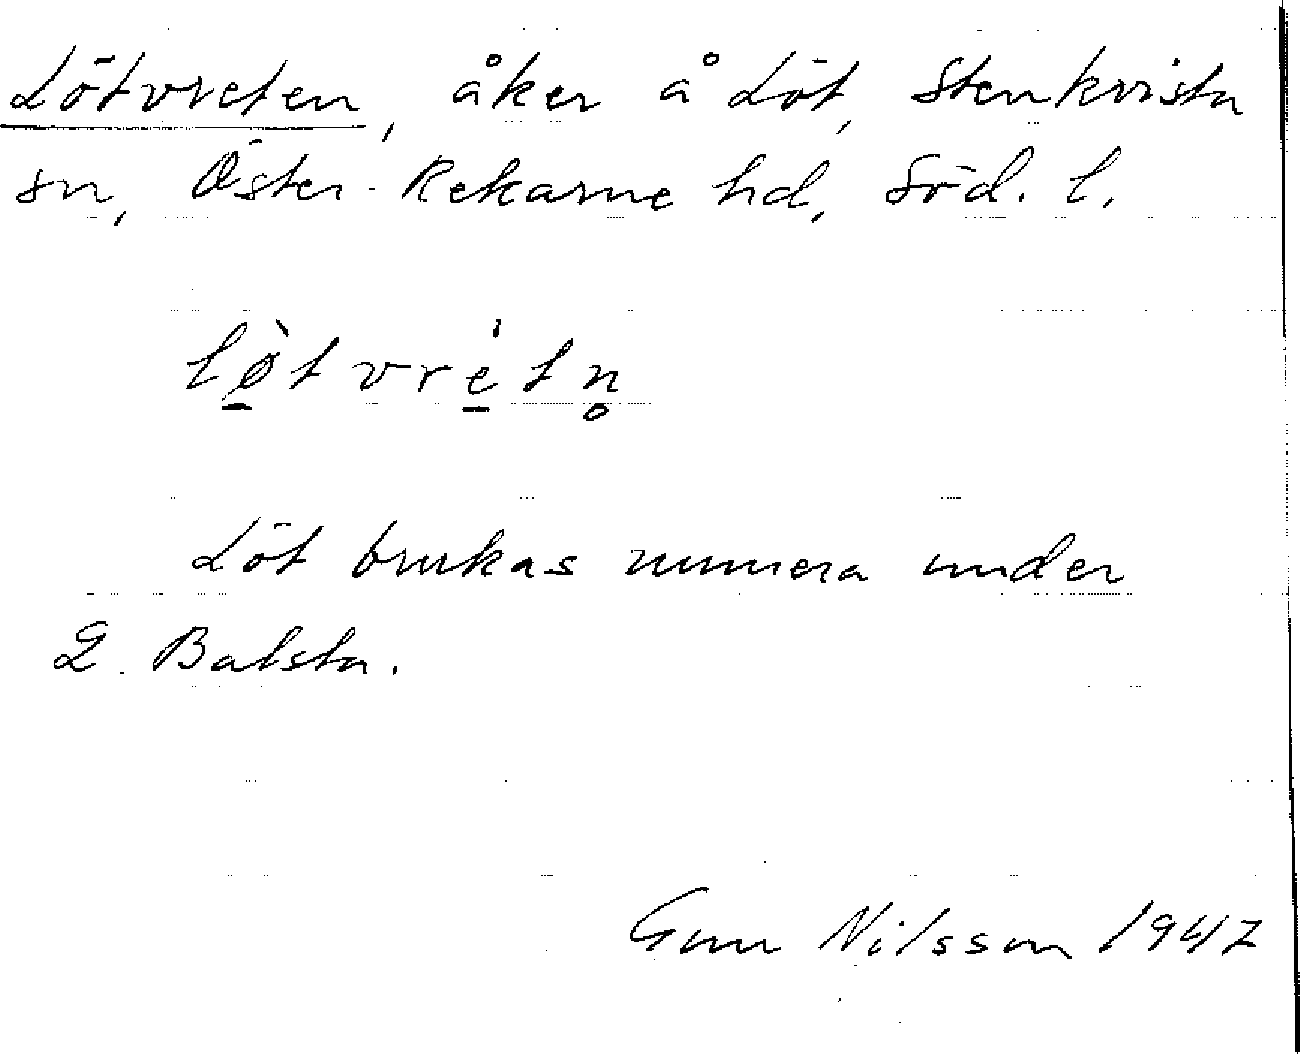 Lötvreten, åker å Löt, Stenkvista
sn, Öster-Rekarne hd, Söd. l.
lø̱̀tvrė̱tn̥
Löt brukas numera under
L. Balsta.
Gun Nilsson 1947